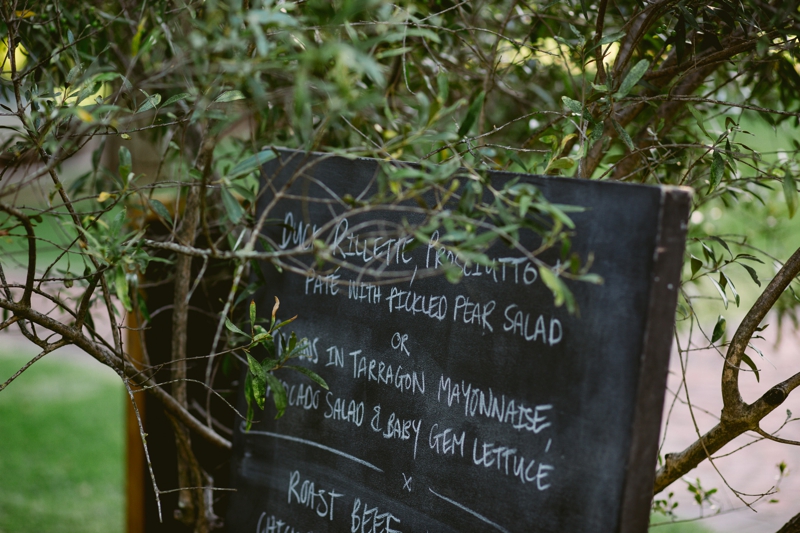 DUCK RILLETTE, PROSCIUTTO +
PATÉ WITH PICKLED PEAR SALAD
OR
IN TARRAGON MAYONNAISE,
SALAD & BABY GEM LETTUCE
x
ROAST BEEF